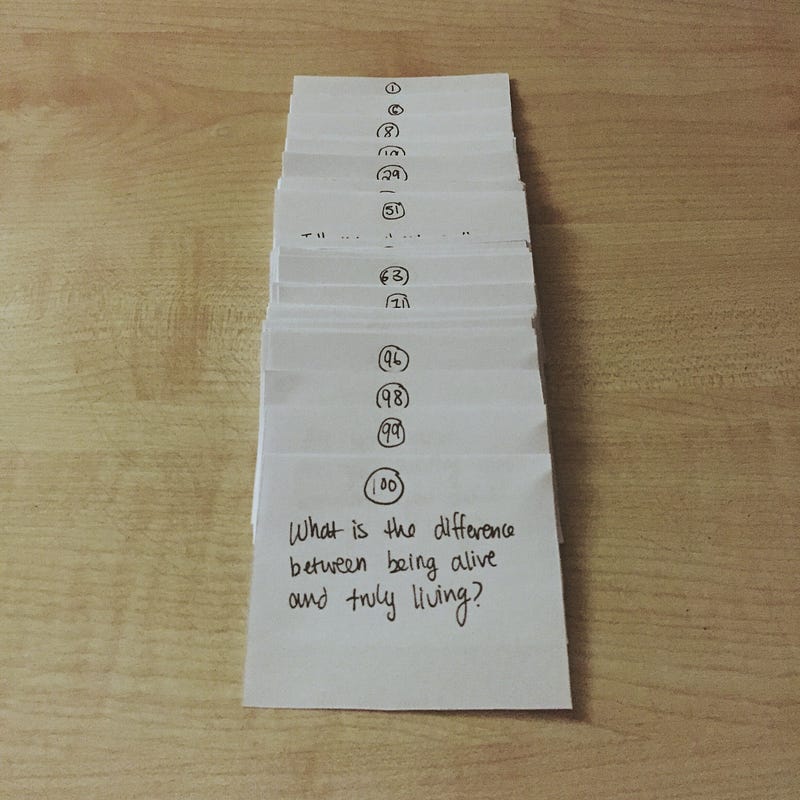 1
6
8
19
29
51
63
71
96
98
99
100
What is the difference
between being alive
and truly living?